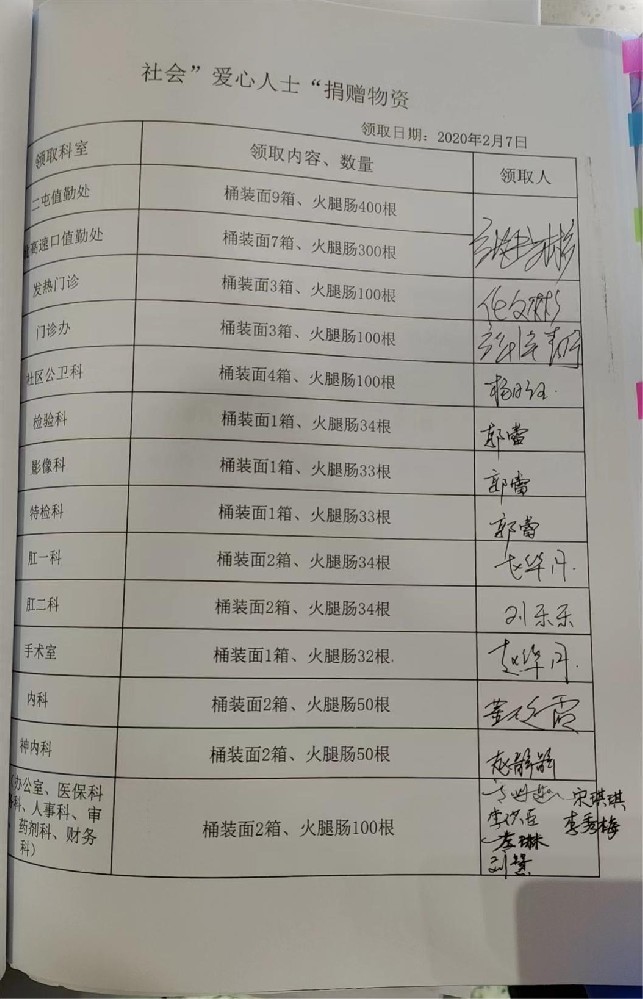 社会”爱心人士“捐赠物资
领取日期：2020年2月7日
领取科室 领取内容、数量 领取人
二屯值勤处 桶装面9箱、火腿肠400根
高速口值勤处 桶装面7箱、火腿肠300根
发热门诊 桶装面3箱、火腿肠100根
门诊办 桶装面3箱、火腿肠100根
社区公卫科 桶装面4箱、火腿肠100根
检验科 桶装面1箱、火腿肠34根 郭雷
影像科 桶装面1箱、火腿肠33根 郭雷
特检科 桶装面1箱、火腿肠33根 郭雷
肛一科 桶装面2箱、火腿肠34根 赵华丹
肛二科 桶装面2箱、火腿肠34根 刘乐乐
手术室 桶装面1箱、火腿肠32根 赵华丹
内科 桶装面2箱、火腿肠50根
神内科 桶装面2箱、火腿肠50根 赵静静
办公室、医保科
科、人事科、审
药剂科、财务
科） 桶装面2箱、火腿肠100根
宋琪琪
李秀梅
李琳